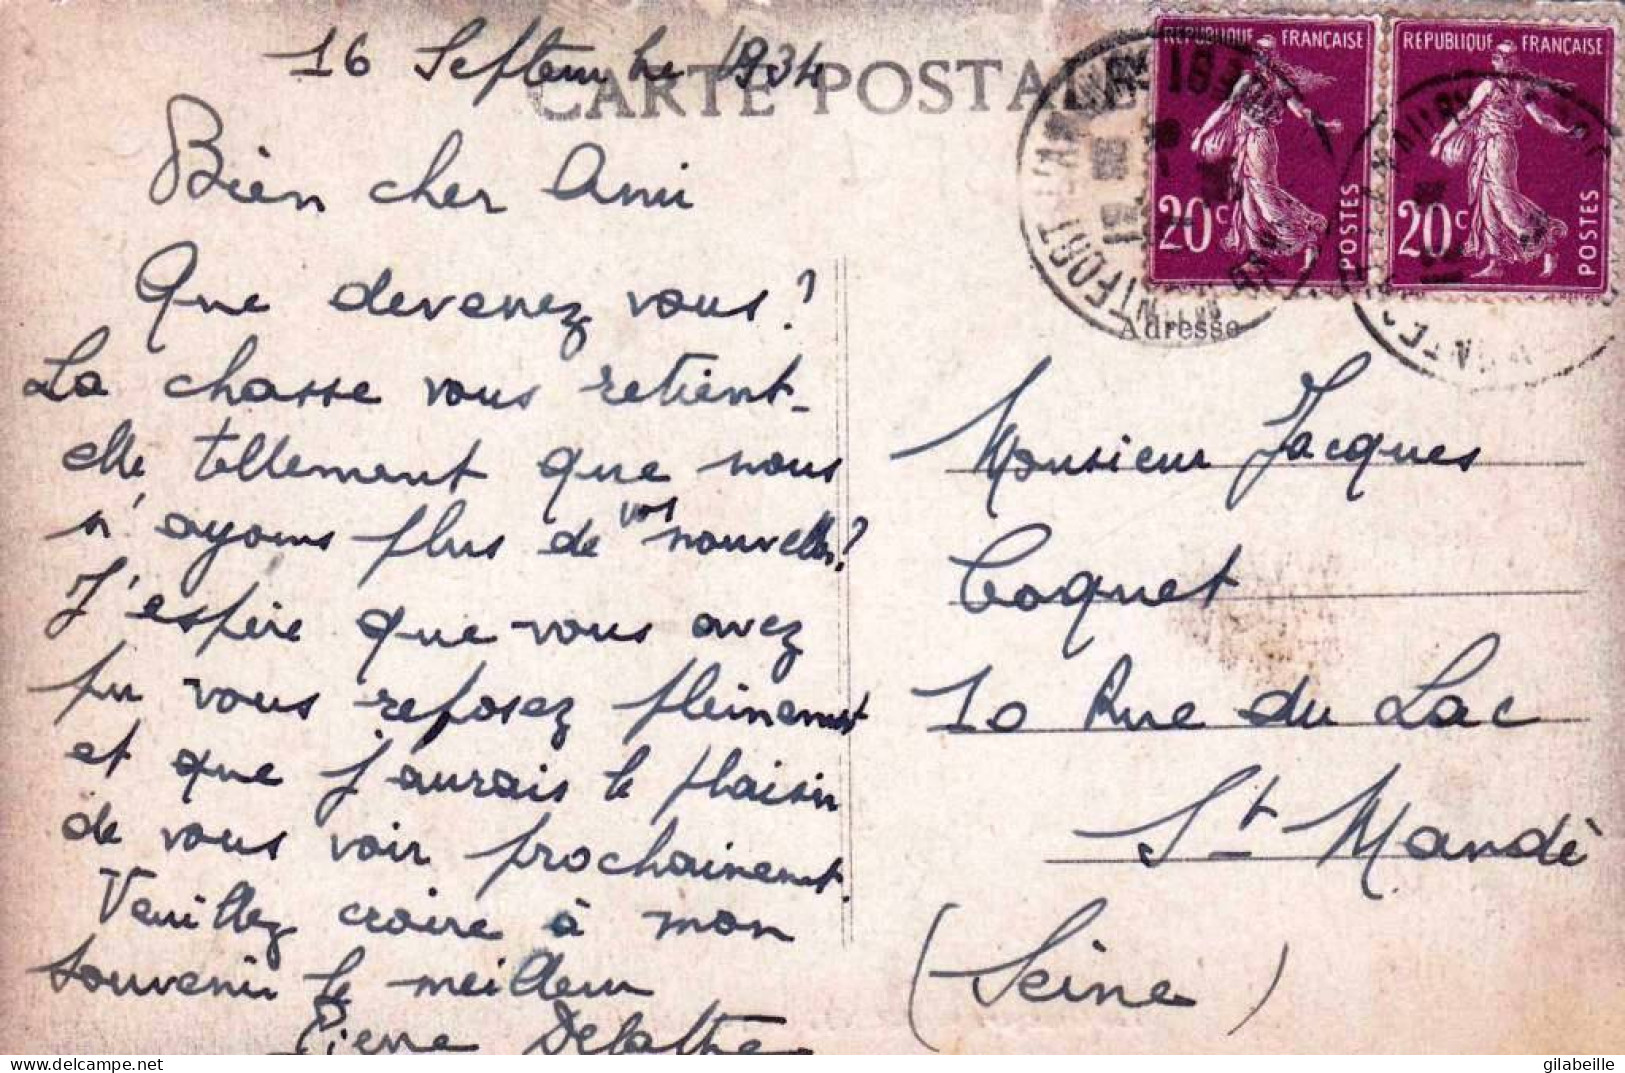 16 Septembre 1934
CARTE POSTALE
RÉPUBLIQUE FRANÇAISE
20c
POSTES
RÉPUBLIQUE FRANÇAISE
20c
POSTES
MONTFORT L'AMAURY
Bien cher Ami
Que devenez vous?
La chasse vous retient-
elle tellement que nous
n'ayons plus de vos nouvelles?
J'espère que vous avez
pu vous reposez pleinement
et que j'aurais le plaisir
de vous voir prochainement.
Veuillez croire à mon
souvenir le meilleur
Pierre Delattre
Adresse
Monsieur Jacques
Coquet
10 Rue du Lac
St Mandè
(Seine)
gilabeille